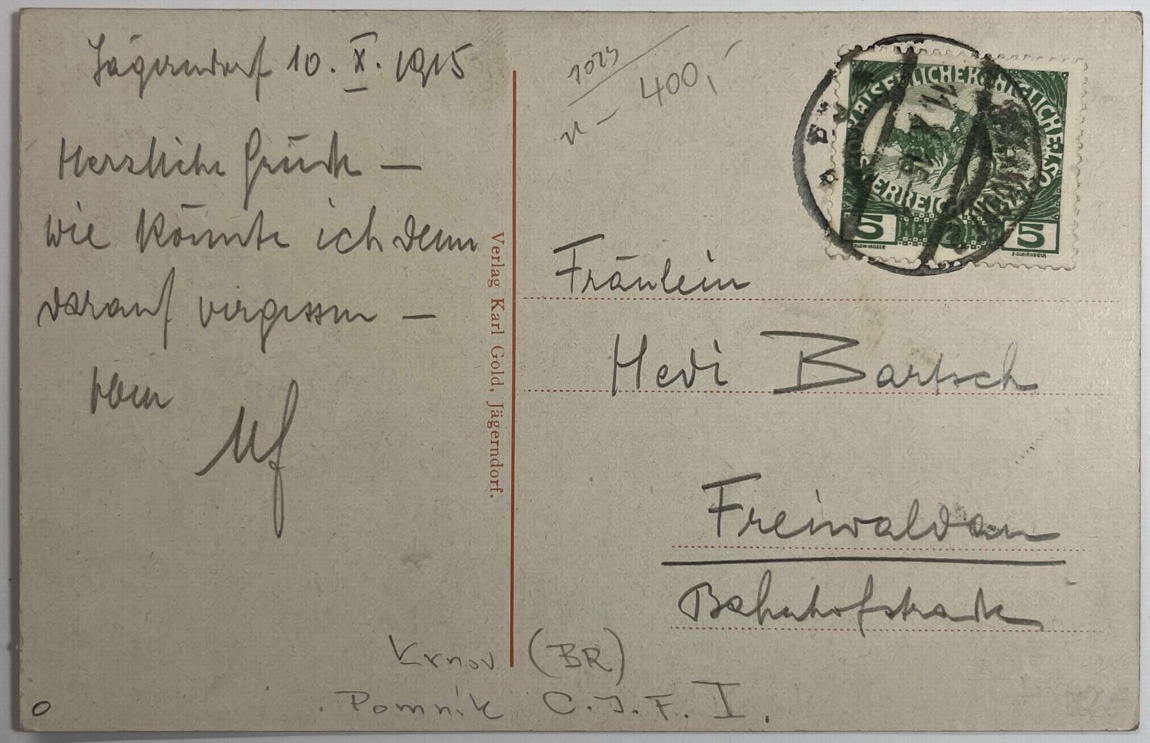 Jägerndorf 10. X. 1915
Herzliche Grüße —
wie könnte ich denn
darauf vergessen —
Verlag Karl Gold, Jägerndorf.
400,-
KAISERLICHE KÖNIGLICHE ÖSTERREICHISCHE
5 HELLER 5
Fräulein
Hedi Bartsch
Freiwaldau
Bahnhofstraße
Krnov (BR)
Pomník C.J.F. I.